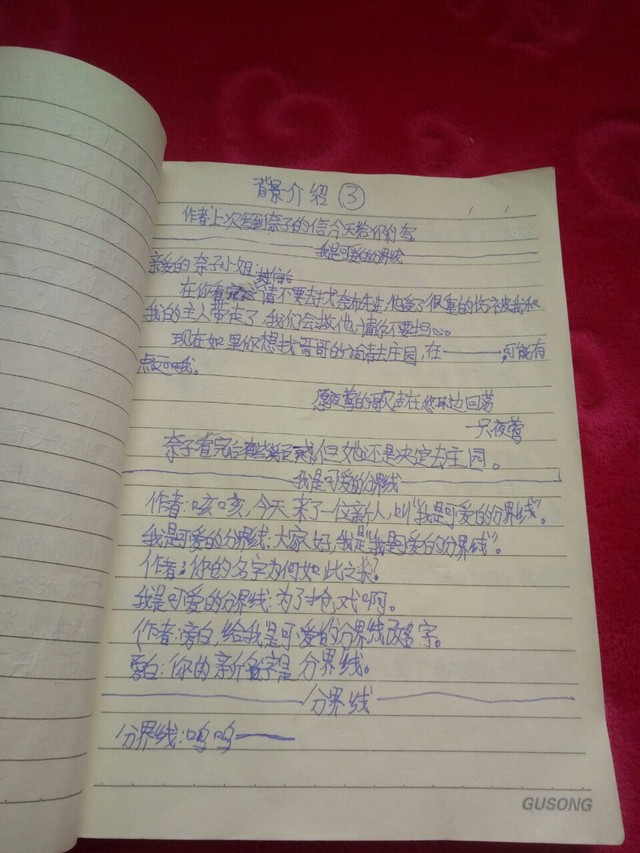 背景介绍③
作者:上次写到奈子的信今天给你们看
我是可爱的分界线
亲爱的奈子小姐:
在你看完这封信。请不要去找奈布先生,他受了很重的伤被我和
我的主人带走了,我们会救他,请你不要担心。
现在如果你想找哥哥的话请去庄园,在———,可能有
点远哦。
愿夜莺的歌声在您耳边回荡
一只夜莺
奈子看完后有些疑惑但她还是决定去庄园。
我是可爱的分界线
作者:咳咳,今天来了一位新人,叫“我是可爱的分界线”。
我是可爱的分界线:大家好,我是“我是可爱的分界线”。
作者:你的名字为何如此之长?
我是可爱的分界线:为了抢戏啊。
作者:旁白,给我是可爱的分界线改名字。
旁白:你的新名字是分界线。
分界线
分界线:呜呜———
GUSONG